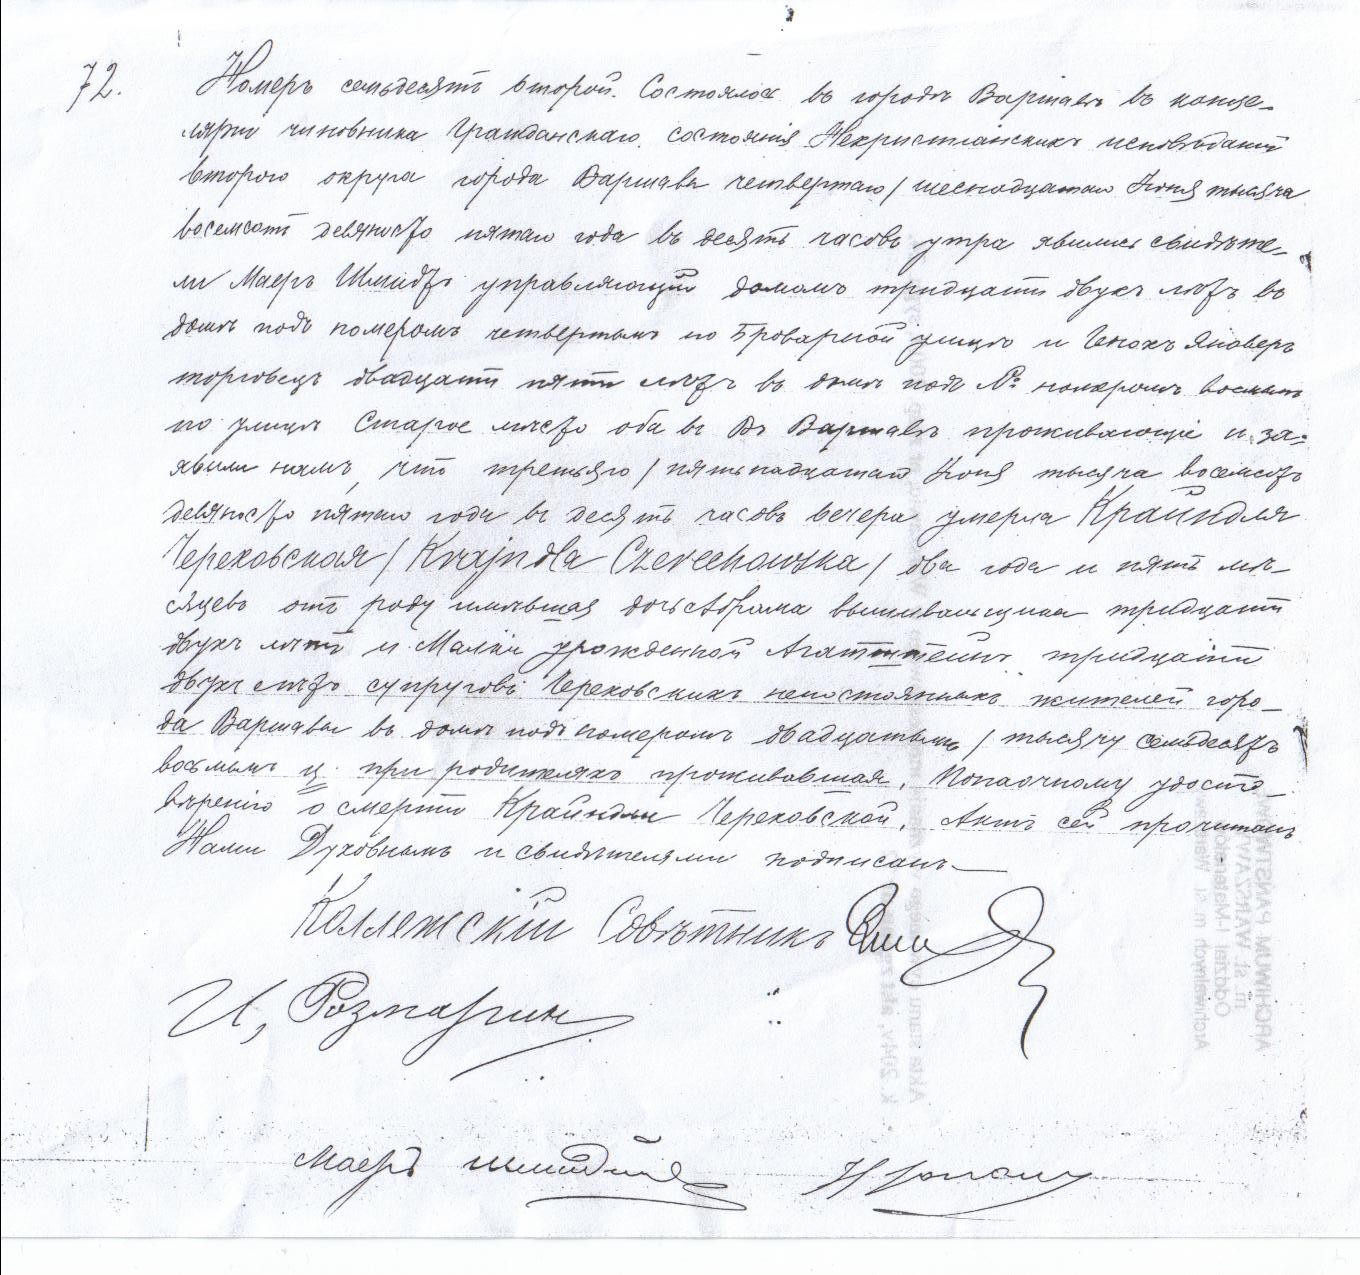 72. Номеръ семьдесятъ второй. Состоялся въ городѣ Варшавѣ въ канце-
ляріи чиновника Гражданскаго состоянія Нехристіанскихъ исповѣданій
второго округа города Варшавы четвертаго / шеснадцатаго Іюня тысяча
восемсотъ девяносто пятаго года въ десять часовъ утра явились свидѣте-
ли Маеръ Шмидтъ управляющій домомъ тридцати двухъ лѣтъ въ
домѣ подъ номеромъ четвертымъ по Броварной улицѣ и Генохъ Яноверъ
торговецъ двадцати пяти лѣтъ въ домѣ подъ № номеромъ восьмымъ
по улицѣ Старое мѣсто оба въ Въ Варшавѣ проживающіе и за-
явили намъ, что третьяго / пятьнадцатаго Іюня тысяча восемсотъ
девяносто пятаго года въ десять часовъ вечера умерла Крайндля
Череховская / Krajndla Czerechowska / два года и пять мѣ-
сяцевъ отъ роду имѣвшая дочь Абрама вышивальщика тридцати
двухъ лѣтъ и Малки урожденной Агатштейнъ тридцати
двухъ лѣтъ супруговъ Череховскихъ непостоянныхъ жителей горо-
да Варшавы въ домѣ подъ номеромъ двадцатымъ / тысячу семьдесятъ
восьмымъ ц при родителяхъ проживавшая. По наочному удосто-
вѣренію о смерти Крайндли Череховской. Актъ сей прочитанъ
Нами Духовнымъ и свидѣтелями подписанъ
Коллежскій Совѣтникъ
И, Розмаринъ
Маеръ Шмидтъ